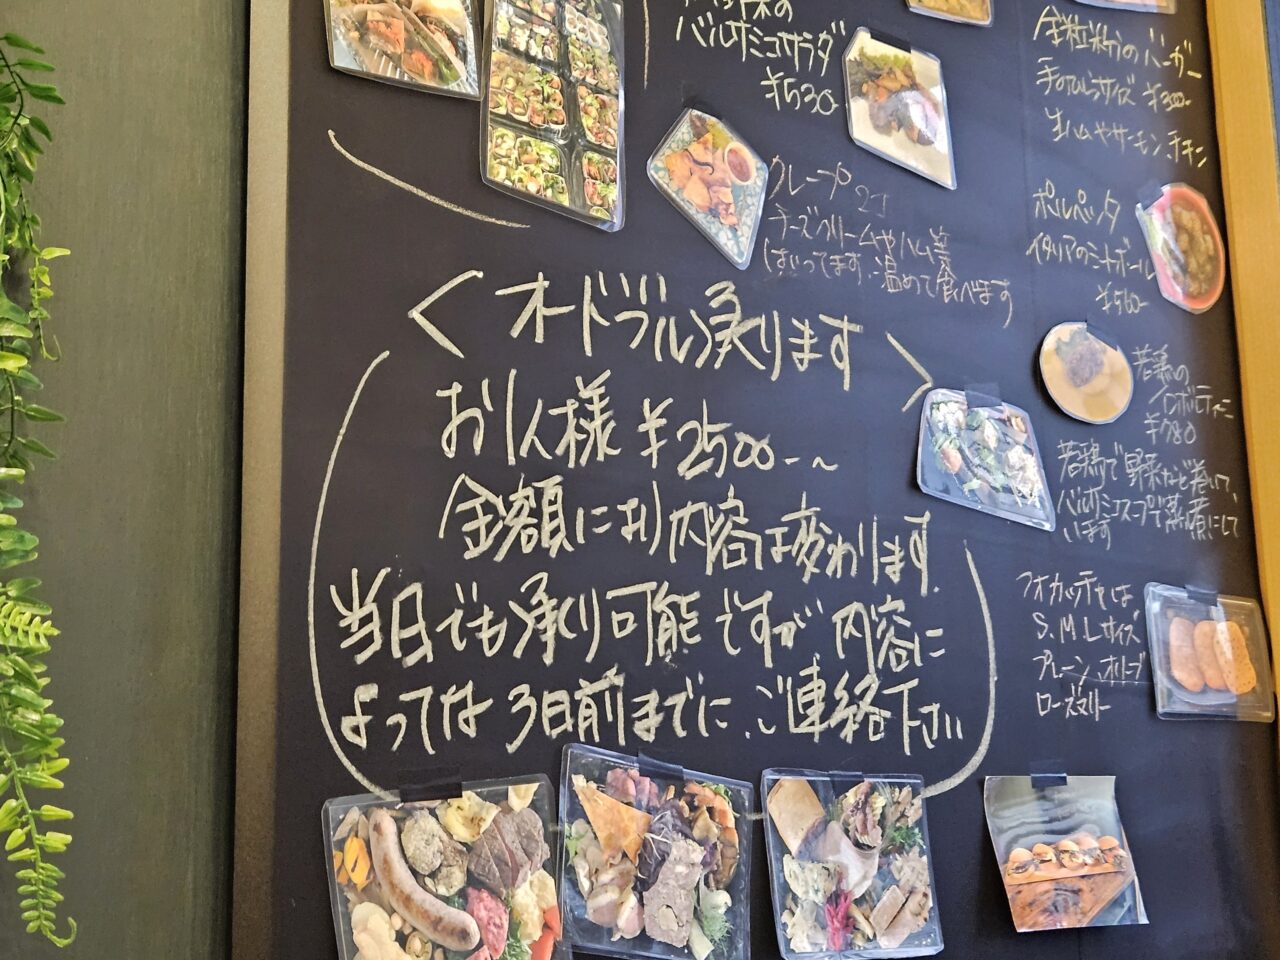 バルサミコサラダ
¥530-
全粒粉のバーガー
手のひらサイズ ¥300-
生ハムやサーモン、チキン
クレープ 2コ
チーズクリームやハム等
はいってます。温めて食べます
ポルペッタ
イタリアのミートボール
¥560-
<オードブル承ります>
お1人様 ¥2500-~
金額により内容は変わります。
当日でも承り可能ですが、内容に
よっては3日前までに、ご連絡下さい
若鶏の
¥780
若鶏で野菜など巻いて、
います
フォカッチャは、
S.M.Lサイズ
プレーン、オリーブ
ローズマリー